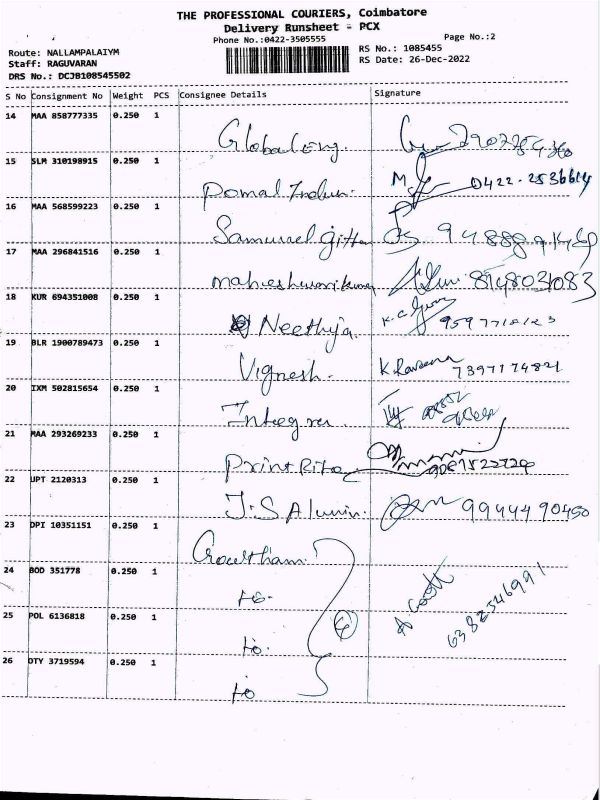 THE PROFESSIONAL COURIERS, Coimbatore
Delivery Runsheet - PCX
Phone No.:0422-3505555
Page No.:2
Route: NALLAMPALAIYM
Staff: RAGUVARAN
DRS No.: DCJB108545502
RS No.: 1085455
RS Date: 26-Dec-2022
S No Consignment No Weight PCS Consignee Details Signature
14 MAA 858777335 0.250 1
Global Eng.
15 SLM 310198915 0.250 1
Pomal Indun. 0422-2536614
16 MAA 568599223 0.250 1
Samuel
17 MAA 296841516 0.250 1
maheshwari kumar 8148031083
18 KUR 694351008 0.250 1
Neethija
19 BLR 1900789473 0.250 1
Vignesh. 7397174821
20 IXM 502815654 0.250 1
Integra.
21 MAA 293269233 0.250 1
Print Rite
22 UPT 2120313 0.250 1
J.S Alumin. 9944490450
23 DPI 10351151 0.250 1
Gowtham
24 BOD 351778 0.250 1
to. 6382546991
25 POL 6136818 0.250 1
to.
26 OTY 3719594 0.250 1
to